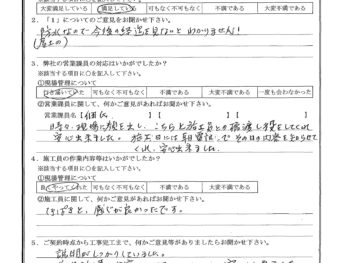 大変満足している 満足している 可もなく不可もなく 不満である 大変不満である
2. 「1」についてのご意見をお聞かせ下さい。
防水なので今後の経過を見ないとわかりません!
(屋上の)
3. 弊社の営業課員の対応はいかがでしたか?
※該当する項目に○を記入して下さい。
①現場管理について
可もなく不可もなく 不満である 大変不満である 一度も会わなかった
②営業課員に関して、何かご意見があればお聞かせ下さい。
営業課員名【 】【 】
時々、現場に顔を出し、こちらと施工員との橋渡し役をしてくれ
安心出来ました。施工日には毎日電話でその日の内容を知らせて
くれ、安心出来ました。
4. 施工員の作業内容等はいかがでしたか?
※該当する項目に○を記入して下さい。
①現場管理について
良くやっていた 可もなく不可もなく 不満である 大変不満である
②施工員に関して、何かご意見があればお聞かせ下さい。
てきぱきと、感じが良かったです。
5. ご契約時点から工事完了まで、何かご意見等がありましたらお聞かせ下さい。
説明がしっかりしていました。